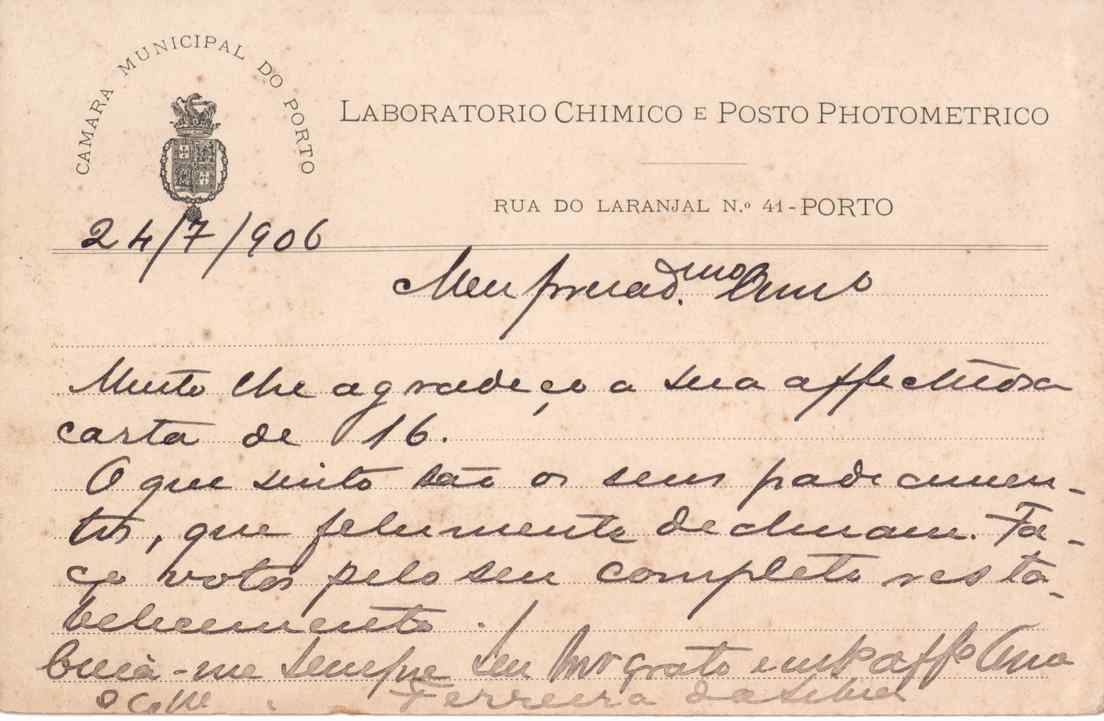 CAMARA MUNICIPAL DO PORTO
LABORATORIO CHIMICO E POSTO PHOTOMETRICO
RUA DO LARANJAL N.º 41-PORTO
24/7/906
Meu prezad.mo Amo
Muito lhe agradeço a sua affectuosa
carta de 16.
O que sinto são os seus padecimen-
tos, que felizmente declinam. Fa-
ço votos pelo seu completo resta-
belecimento.
Creia-me sempre seu grato e affo Amo
Ferreira da Silva